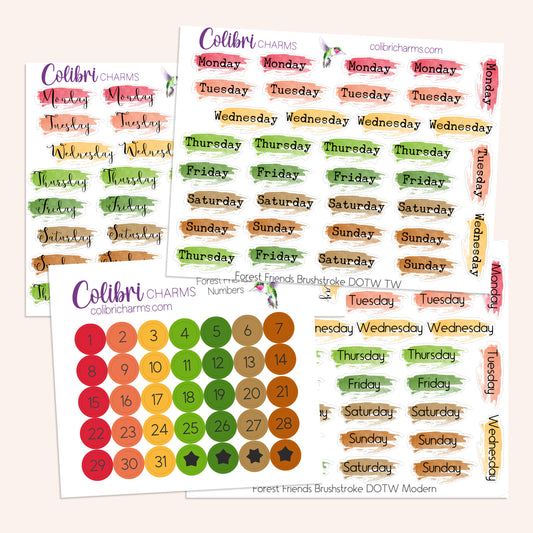 Colibri CHARMS
Monday Monday
Tuesday Tuesday
Wednesday Wednesday
Thursday Thursday
Friday Friday
Saturday Saturday
Sunday Sunday
Thursday
Colibri CHARMS
colibricharms.com
Monday Monday Monday Monday
Tuesday Tuesday Tuesday Tuesday
Wednesday Wednesday Wednesday Wednesday
Thursday Thursday Thursday Thursday
Friday Friday Friday Friday
Saturday Saturday Saturday Saturday
Sunday Sunday Sunday Sunday
Thursday Friday Saturday Sunday
Monday
Tuesday
Wednesday
Forest Friends Brushstroke DOTW TW
Colibri CHARMS
colibricharms.com
Numbers
1 2 3 4 5 6 7
8 9 10 11 12 13 14
15 16 17 18 19 20 21
22 23 24 25 26 27 28
29 30 31
Monday
Tuesday Tuesday
Wednesday Wednesday Wednesday
Thursday Thursday
Friday Friday
Saturday Saturday
Sunday Sunday
Saturday Sunday
Tuesday
Wednesday
Forest Friends Brushstroke DOTW Modern